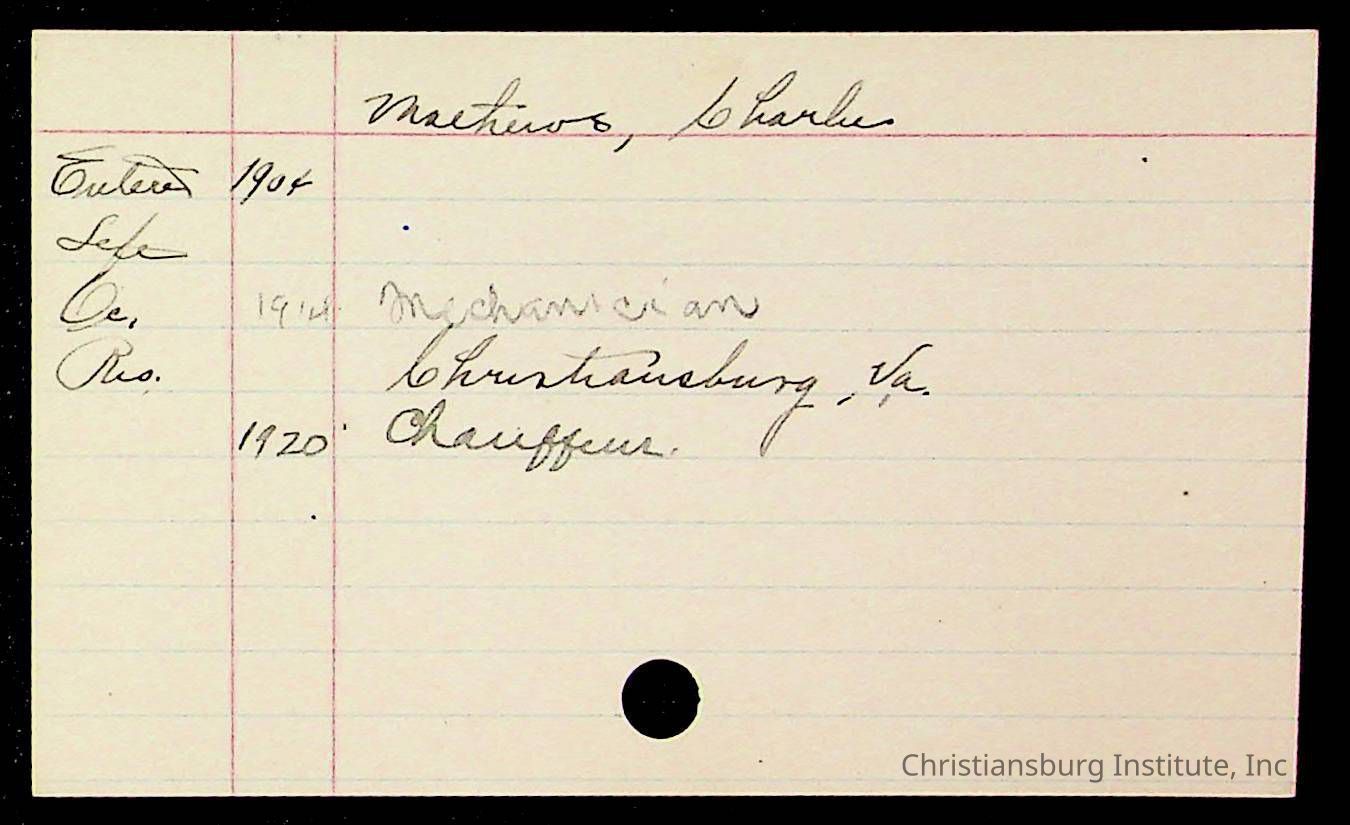 Mathews, Charles
Entered 1904
Left
Oc. 1914 Mechanician
Res. Christiansburg, Va.
1920 Chauffeur.
Christiansburg Institute, Inc